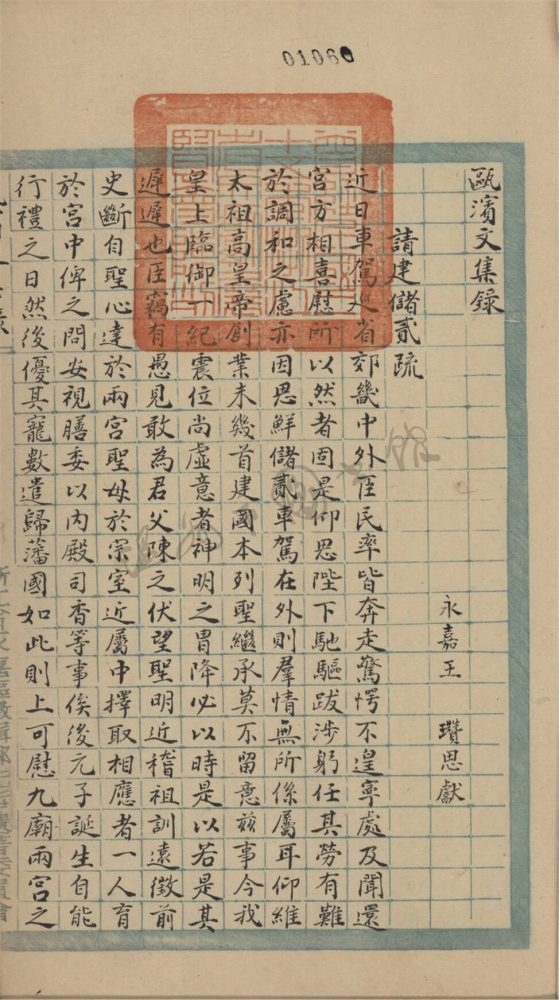 01060
甌濱文集録
永嘉王 瓚思獻
請建儲貳疏
近日車駕巡省郊畿中外臣民率皆奔走驚愕不遑寧處及聞還
宮方相喜慰所以然者固是仰思陛下馳驅跋涉躬任其勞有難
於調和之慮亦因思鮮儲貳車駕在外則羣情無所係屬耳仰維
太祖高皇帝創業未幾首建國本列聖繼承莫不留意兹事今我
皇上臨御一紀震位尚虛意者神明之胄降必以時是以若是其
遲遲也臣竊有愚見敢為君父陳之伏望聖明近稽祖訓遠徵前
史斷自聖心達於兩宮聖母於宗室近屬中擇取相應者一人育
於宮中俾之問安視膳委以内殿司香等事俟後元子誕生自能
行禮之日然後優其寵數遣歸藩國如此則上可慰九廟兩宮之